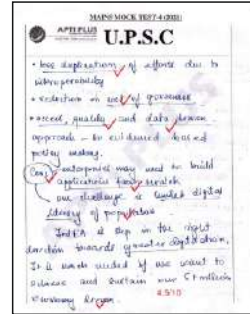 MAINS MOCK TEST-4 (2021)
APTI PLUS
U.P.S.C
• less duplication of efforts due to
interoperability
• reduction in cost of governance
• speed, quality and data driven
approach - to evidenced based
policy making.
Cons enterprises may need to build
applications from scratch
one challenge is limited digital
literacy of population
IndEA is step in the right
direction towards greater digitization.
It is much needed if we want to
achieve and sustain our $ trillion
economy
4.5/10